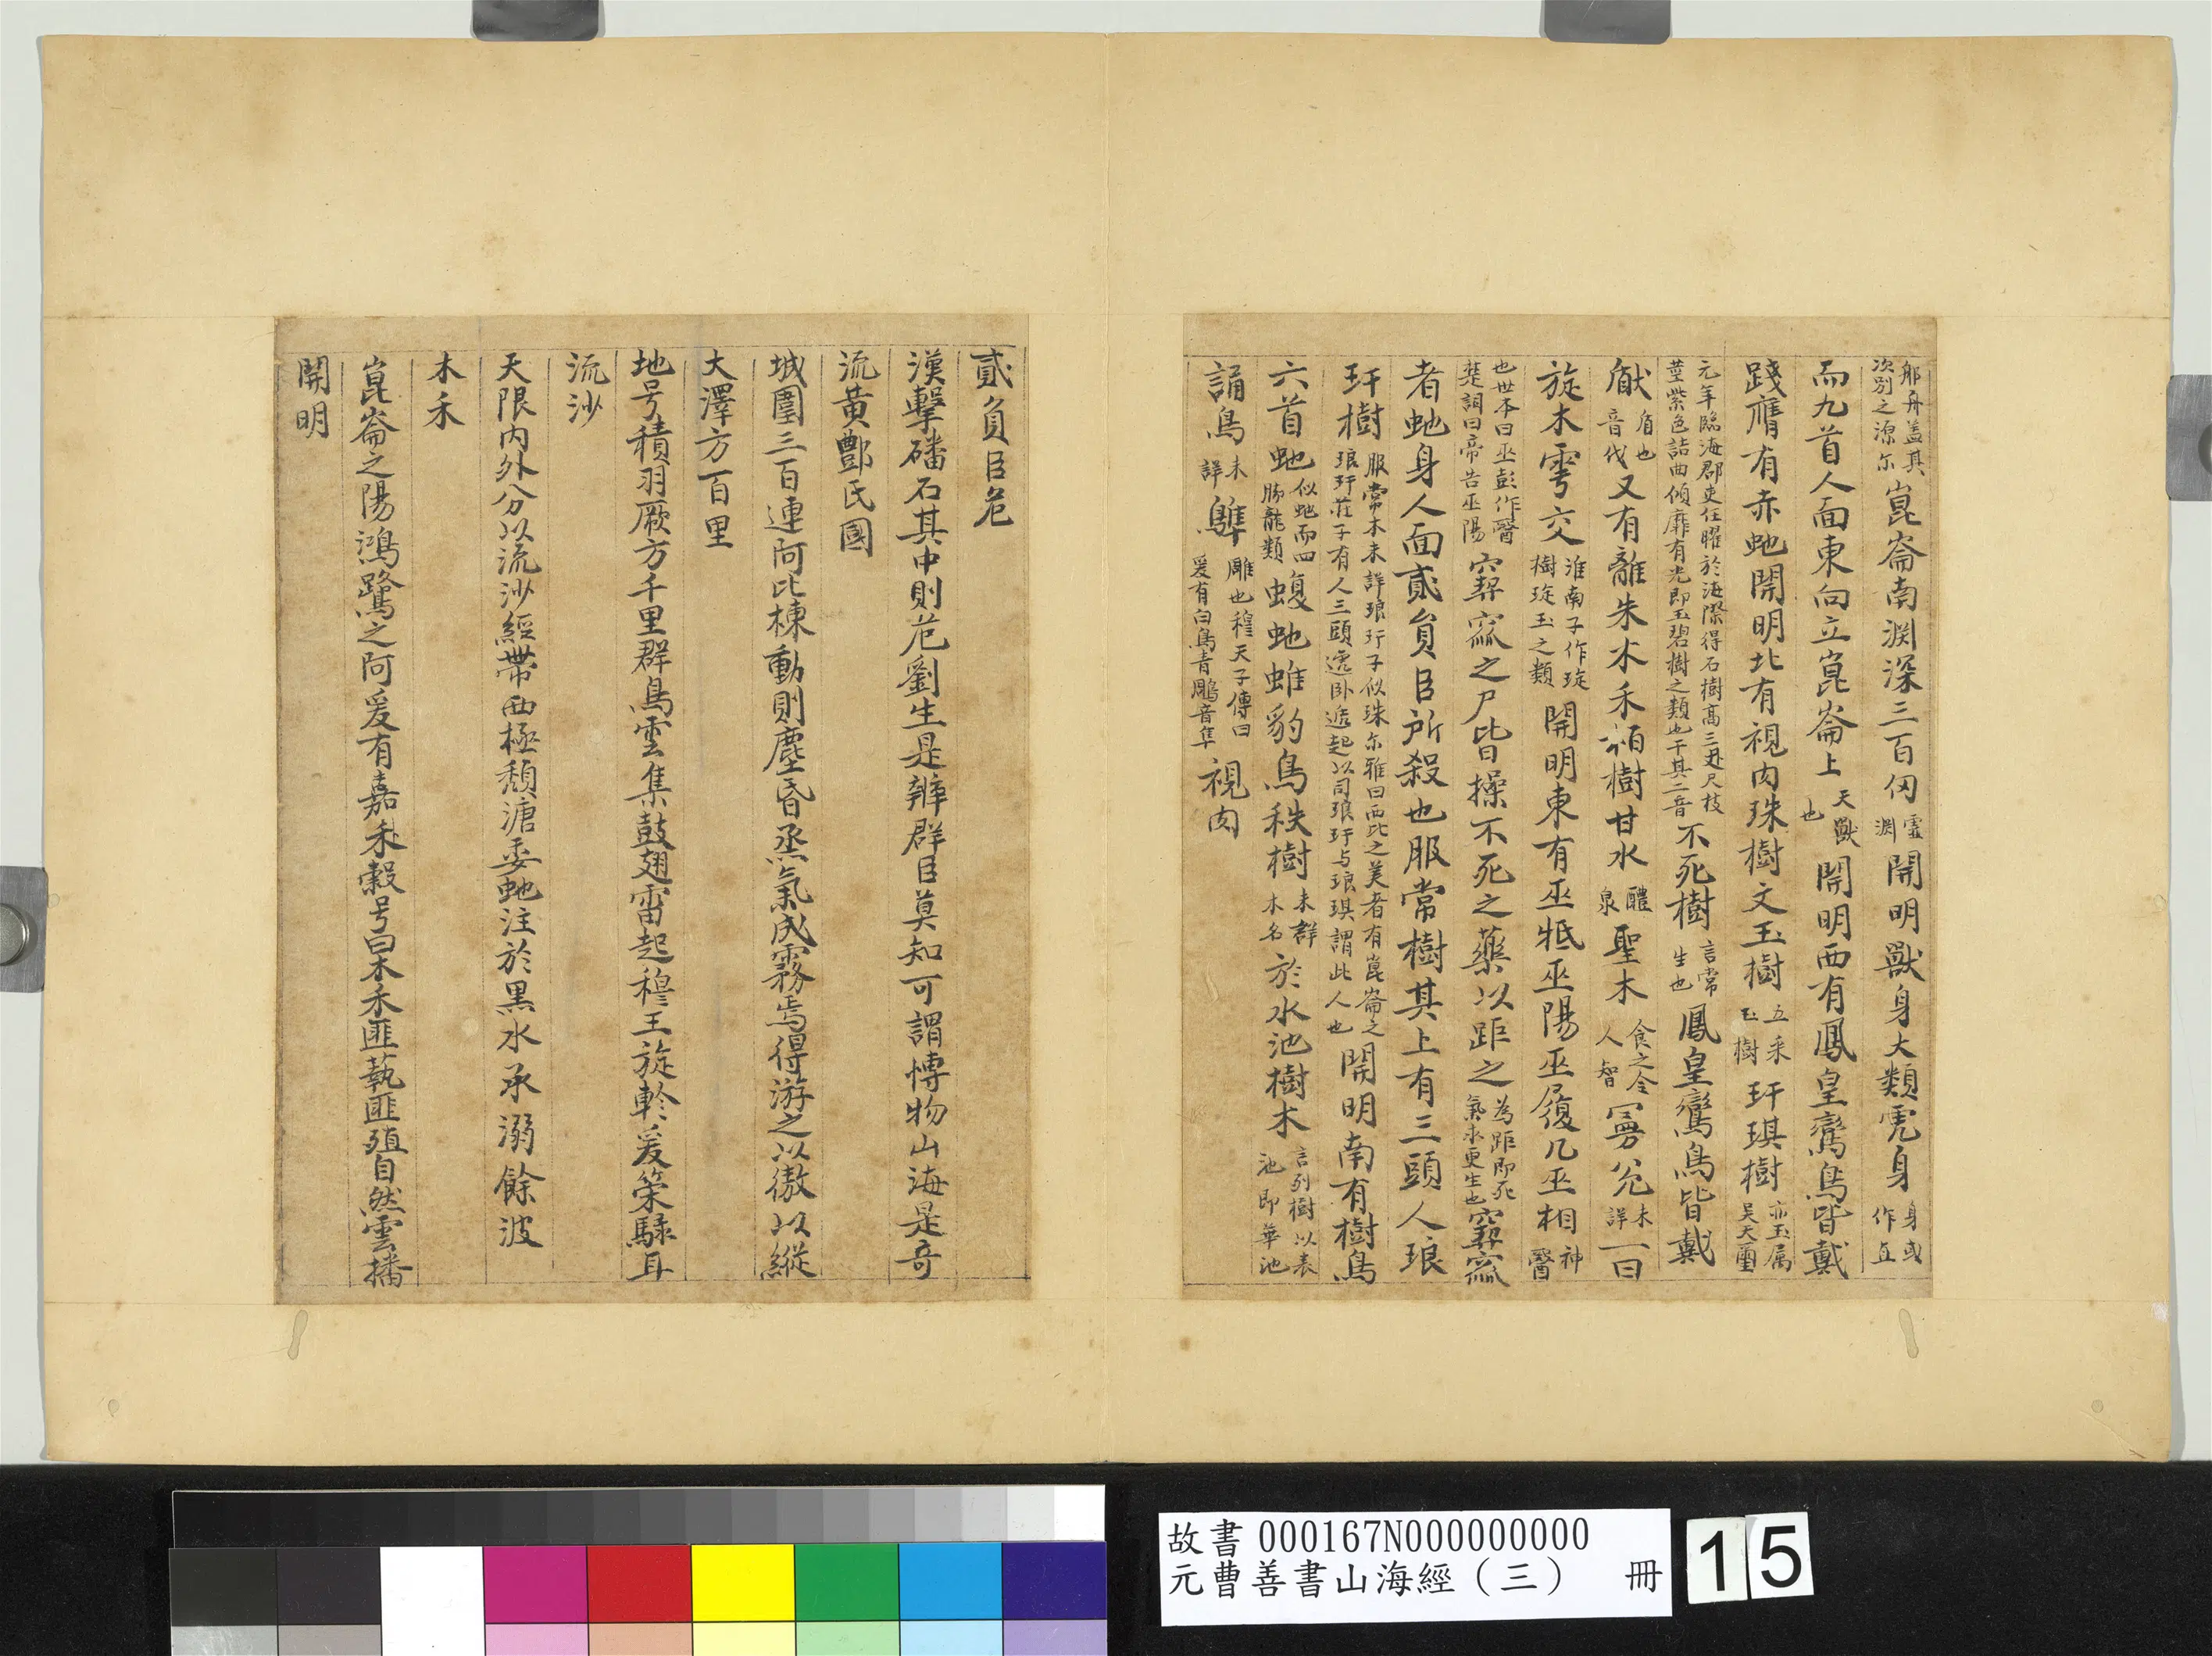 郍舟盖其
次别之源尓
崑崙南渊深三百仞
靈
渊
開明獸身大類虎身
身或
作直
而九首人面東向立崑崙上
天獸
也
開明西有鳳皇鸞鳥皆戴
踐膺有赤虵開明北有視肉珠樹文玉樹
五采
玉樹
玕琪樹
亦玉属
吴天璽
元年臨海郡吏伍曜於海際得石樹高三赤尺枝
莖紫色詰曲傾靡有光即玉碧樹之類也干其二音
不死樹
言常
生也
鳳皇鸞鳥皆戴
瞂
盾也
音伐
又有離朱木禾栢樹甘水
醴
泉
聖木
食之令
人智
曼兊
未
詳
一曰
旋木雩交
淮南子作琁
樹琁玉之類
開明東有巫牴巫陽巫履几巫相
神
醫
也世本曰巫彭作醫
楚詞曰帝告巫陽
窫窳之尸皆操不死之藥以距之
為距即死
氣求更生也
窫窳
者虵身人面貳負臣所殺也服常樹其上有三頭人琅
玕樹
服常木未詳琅玕子似珠尓雅曰西北之美者有崑崙之
琅玕莊子有人三頭遞卧遞起以司琅玕与琅琪謂此人也
開明南有樹鳥
六首虵
似虵而四
脚龍類
蝮虵蜼豹鳥秩樹
未群
木名
於水池樹木
言列樹以表
池即華池
誦鳥
未
詳
鵻
雕也穆天子傳曰
爰有白鳥青鵰音隼
視肉
貳負臣危
漢擊磻石其中則危劉生是辨群臣莫知可謂愽物山海是竒
流黄酆氏國
城圍三百連河比棟動則塵昏烝氣成霧焉得游之以傲以縱
大澤方百里
地号積羽厥方千里群鳥雲集鼓翅雷起穆王旋軫爰策騄耳
流沙
天限内外分以流沙經帶西極頽溏委虵注於黒水永溺餘波
木禾
崑崙之陽鴻鷺之阿爰有嘉禾穀号曰木禾匪蓺匪殖自然雲播
開明
故書 000167N000000000
元曹善書山海經（三） 冊
15